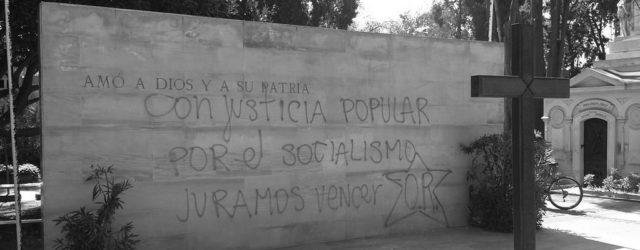 AMÓ A DIOS Y A SU PATRIA
Con justicia POPULAR
POR el SOCIALISMO
JURAMOS Vencer